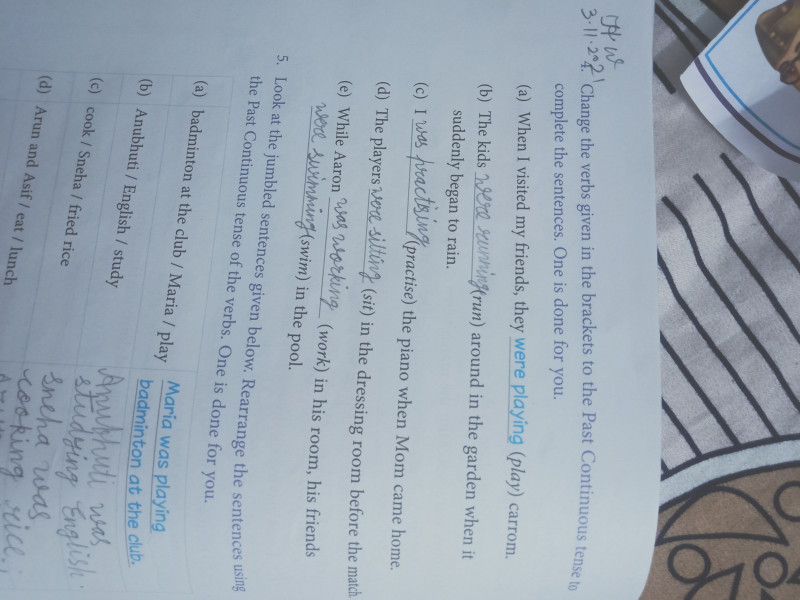 HW
3.11.2021
4. Change the verbs given in the brackets to the Past Continuous tense to
complete the sentences. One is done for you.
(a) When I visited my friends, they were playing (play) carrom.
(b) The kids were running (run) around in the garden when it
suddenly began to rain.
(c) I was practising (practise) the piano when Mom came home.
(d) The players were sitting (sit) in the dressing room before the match
(e) While Aaron was working (work) in his room, his friends
were swimming (swim) in the pool.
5. Look at the jumbled sentences given below. Rearrange the sentences using
the Past Continuous tense of the verbs. One is done for you.
(a) badminton at the club / Maria / play
Maria was playing
badminton at the club.
(b) Anubhuti / English / study
Anubhuti was
studying English.
(c) cook / Sneha / fried rice
sneha was
cooking rice.
(d) Arun and Asif / eat / lunch